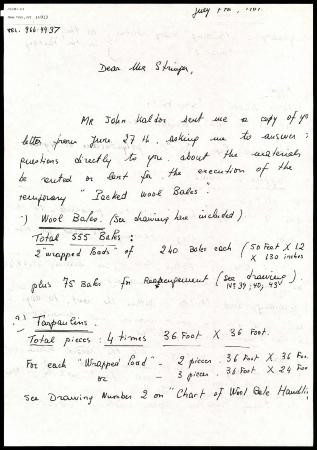 New York, NY 10013
TEL. 966-4437
July
Dear Miss Stringer,
Mr John Kaldor sent me a copy of yo
letter from June 27th, asking me to answer
questions directly to you about the materials
be rented or lent for the execution of the
temporary "Packed Wool Bales".
1) Wool Bales. (See drawing here included).
Total 555 Bales:
2 "wrapped loads" of 240 Bales each (50 Foot x 12
x 130 inches
plus 75 Bales for Rearrangement (see drawing
N° 39, 40, 43
2) Tarpaulins.
Total pieces: 4 times 36 Foot x 36 Foot.
For each "Wrapped load" - 2 pieces 36 Foot x 36 Foo
or - 3 pieces 36 Foot x 24 Foo
See Drawing Number 2 on "Chart of Wool Bale Handli